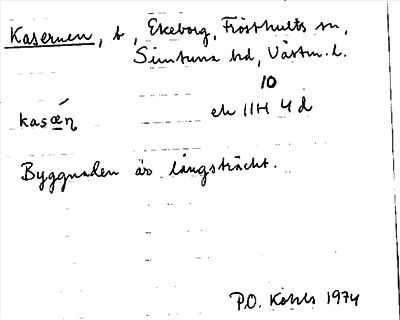 Kasernen, t, Ekeborg, Frösthults sn,
Simtuna hd, Västm. l.
10
kasǽṇ ek 11H 4 d
Byggnaden är långsträckt.
P.O. 1974